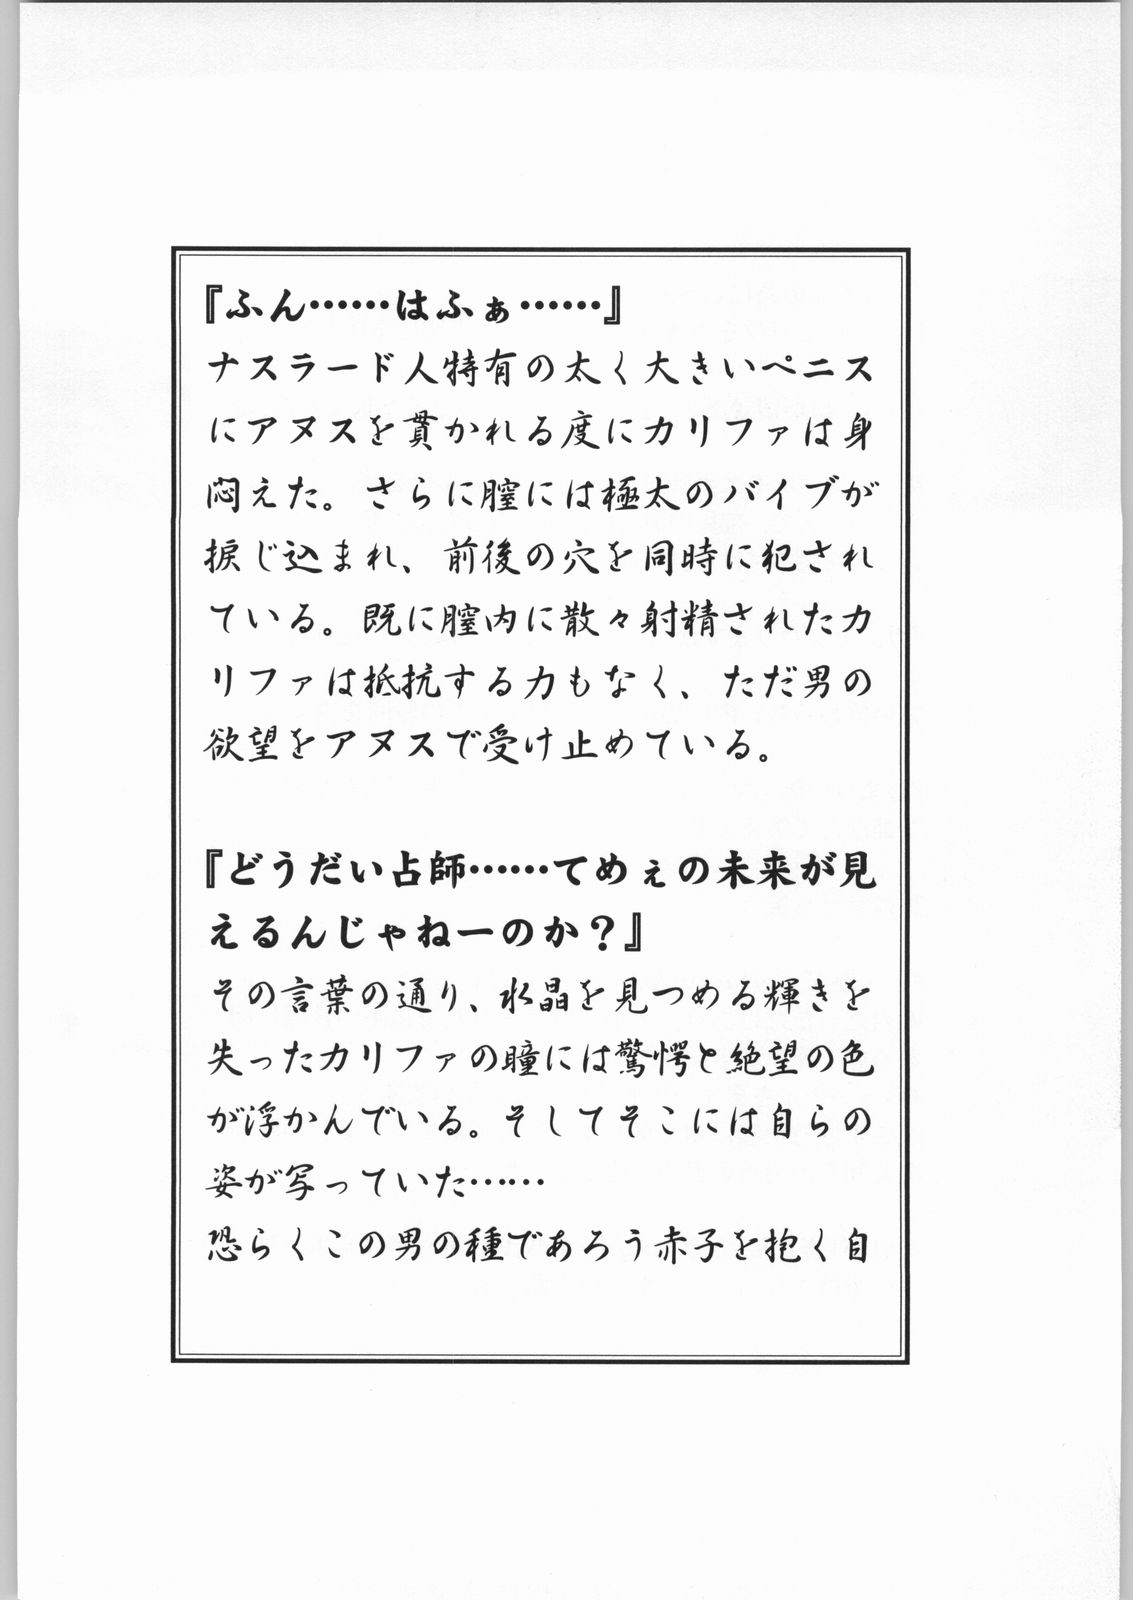 『ふん……はふぁ……』
ナスラード人特有の太く大きいペニス
にアヌスを貫かれる度にカリファは身
悶えた。さらに膣には極太のバイブが
捩じ込まれ、前後の穴を同時に犯され
ている。既に膣内に散々射精されたカ
リファは抵抗する力もなく、ただ男の
欲望をアヌスで受け止めている。
『どうだい占師……てめぇの未来が見
えるんじゃねーのか？』
その言葉の通り、水晶を見つめる輝きを
失ったカリファの瞳には驚愕と絶望の色
が浮かんでいる。そしてそこには自らの
姿が写っていた……
恐らくこの男の種であろう赤子を抱く自